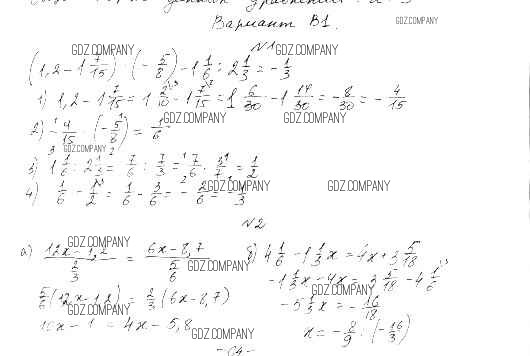 Вариант В1.
GDZ.COMPANY
N1
GDZ.COMPANY GDZ.COMPANY
(1,2 - 1 7/15) · (-5/8) - 1 1/6 : 2 1/3 = -1/3
1) 1,2 - 1 7/15 = 1 2/10 - 1 7/15 = 1 6/30 - 1 14/30 = -8/30 = -4/15
GDZ.COMPANY GDZ.COMPANY
2) -4/15 · (-5/8) = 1/6
GDZ.COMPANY
3) 1 1/6 : 2 1/3 = 7/6 : 7/3 = 7/6 · 3/7 = 1/2
4) 1/6 - 1/2 = 1/6 - 3/6 = -2/6 = -1/3
GDZ.COMPANY GDZ.COMPANY
N2
GDZ.COMPANY
а) 12x - 1,2 / 2/3 = 6x - 8,7 / 5/6
GDZ.COMPANY
5/6 (12x - 1,2) = 2/3 (6x - 8,7)
GDZ.COMPANY
10x - 1 = 4x - 5,8
GDZ.COMPANY
б) 4 1/6 - 1 1/3 x = 4x + 3 5/18
-1 1/3 x - 4x = 3 5/18 - 4 1/6
GDZ.COMPANY
-5 1/3 x = -16/18
x = -8/9 : (-16/3)